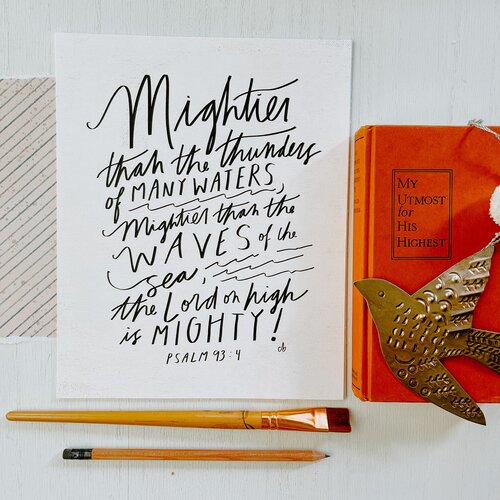 Mightier
than the thunders
of MANY WATERS,
Mightier than the
WAVES of the
sea,
the Lord on high
is MIGHTY!
PSALM 93:4
MY
UTMOST
for
HIS
HIGHEST